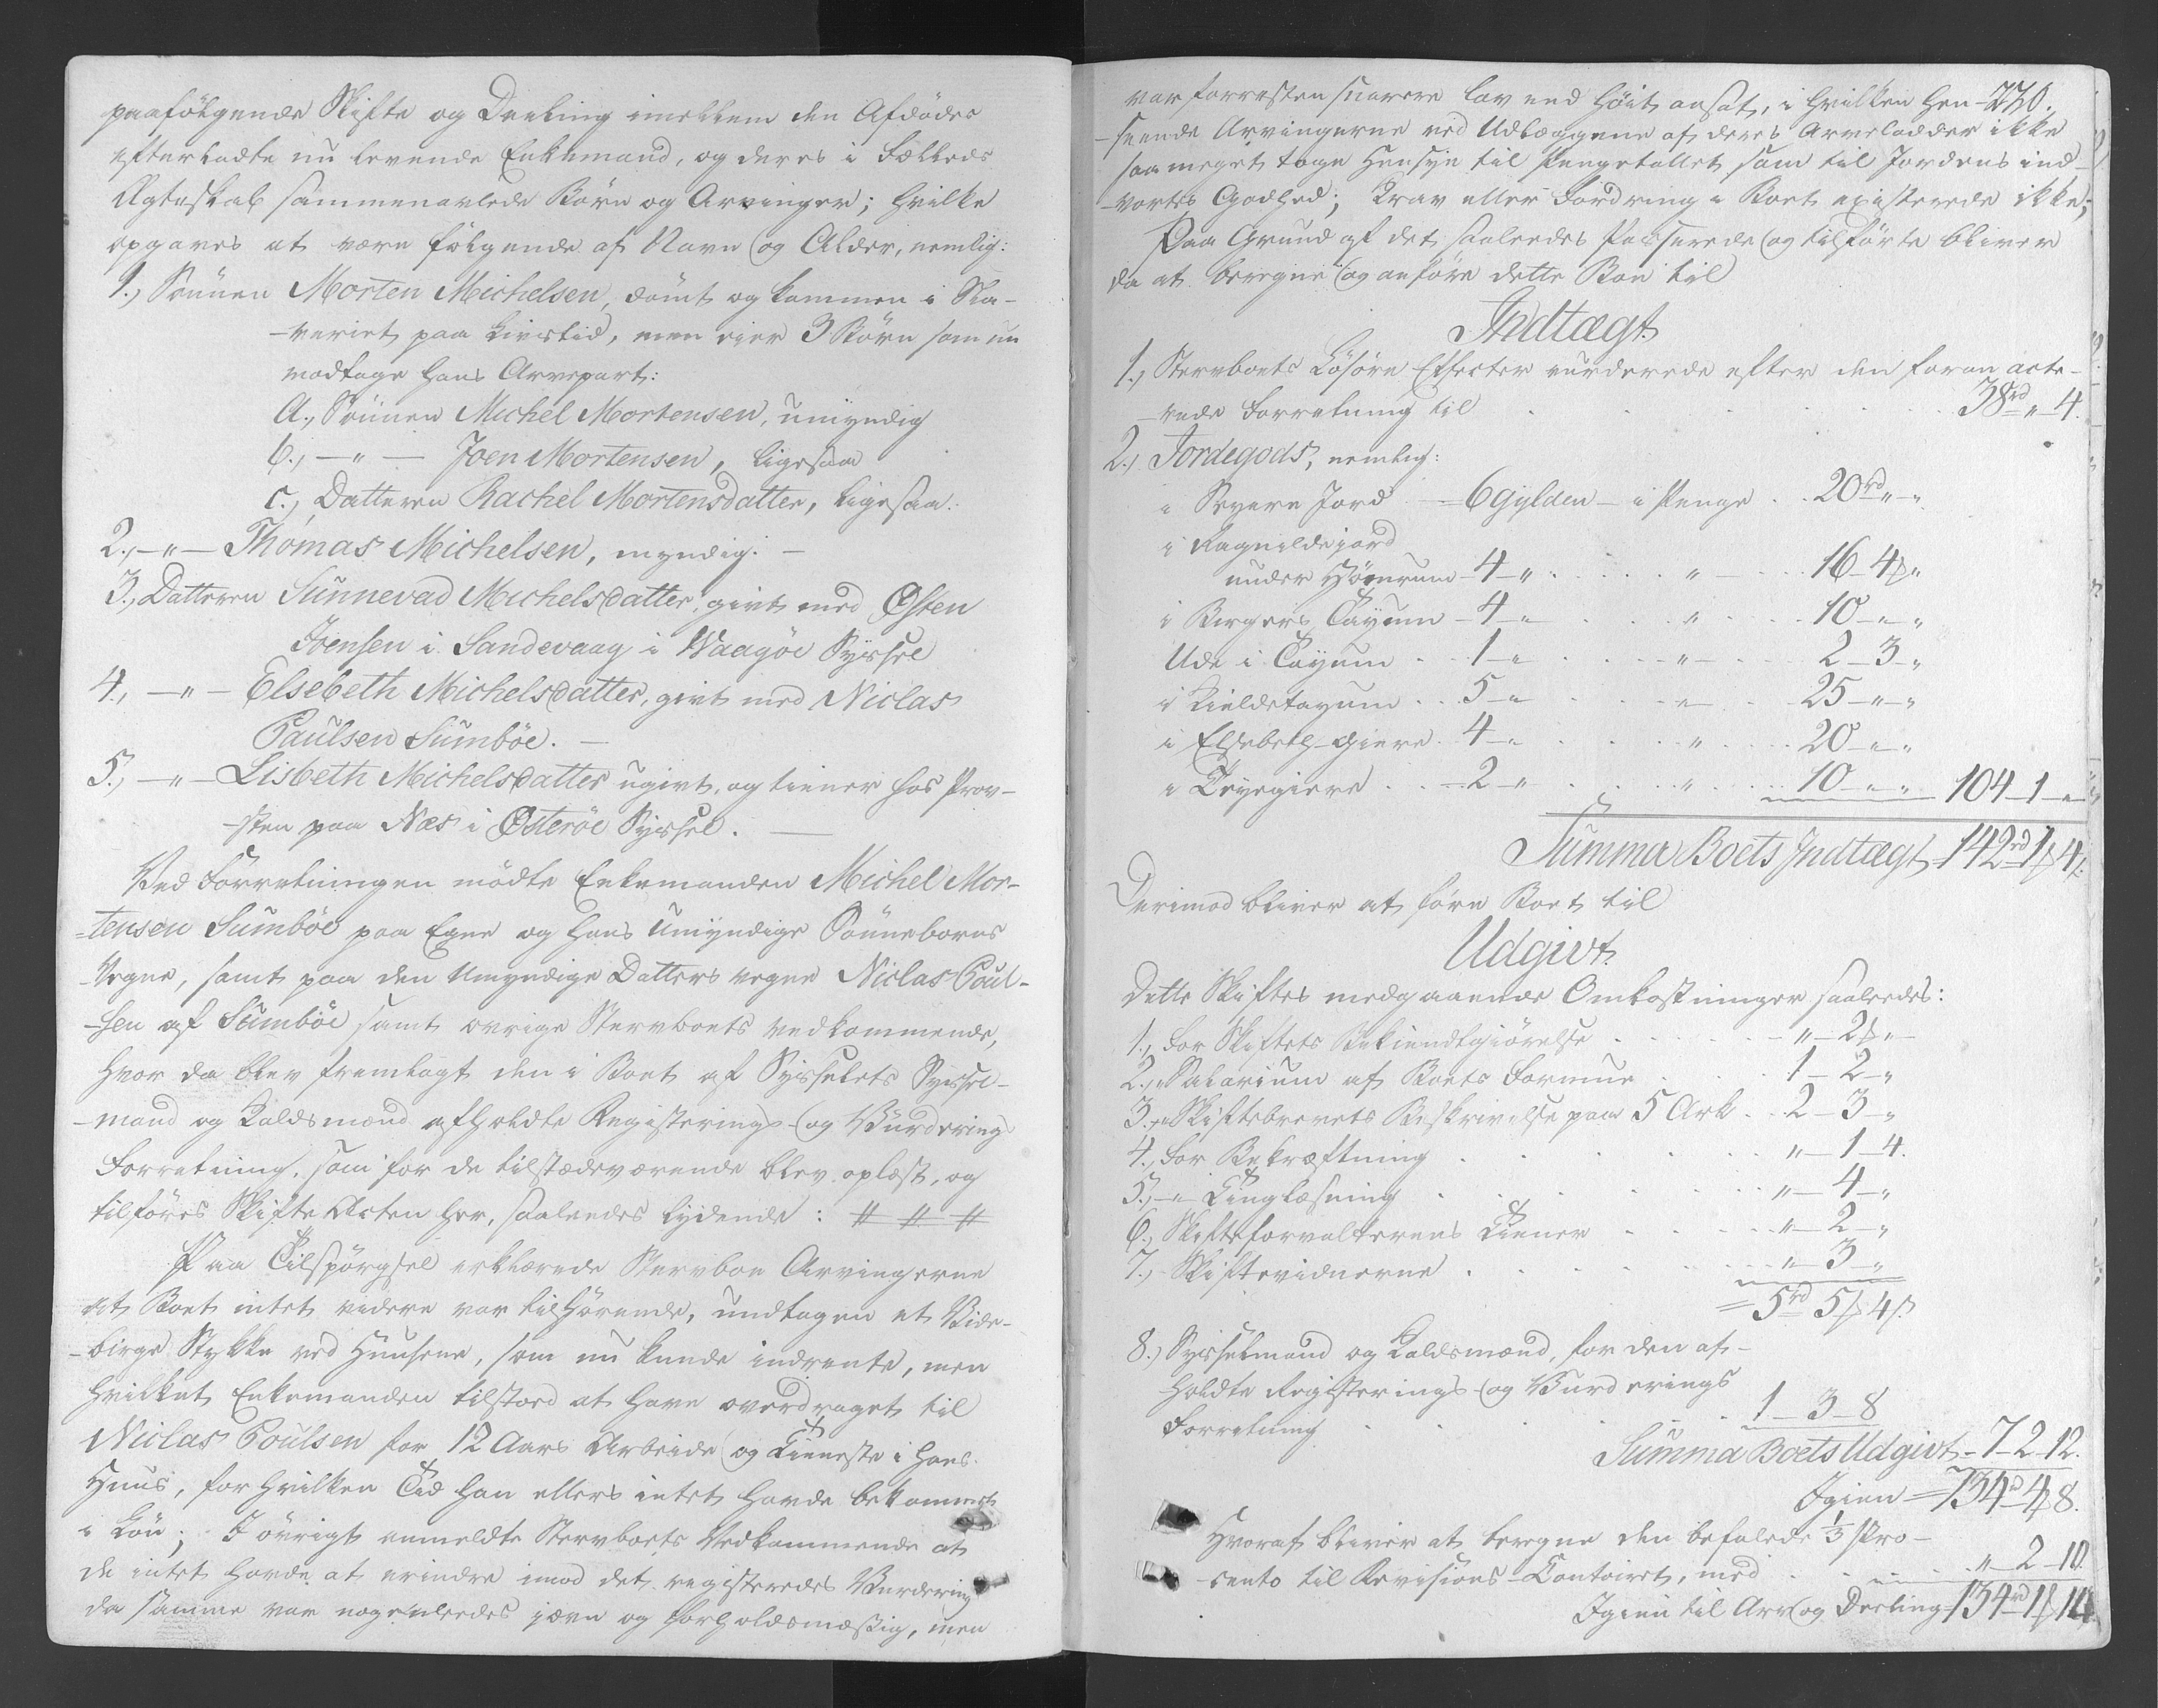 paafölgende Skifte og Deeling imellem den Afdödes
efterladte nu levende Enkemand, og deres i Fælleds
Ægteskab sammenavlede Börn og Arvinger; hvilke
opgaves at være fölgende af Navn og Alder, nemlig:
1., Sönnen Morten Michelsen, dömt og kommen i Sla-
-veriet paa Livstid, men eier 3 Börn som nu
modtage hans Arvepart:
a., Sönnen Michel Mortensen, umyndig
b., —"— Joen Mortensen, ligesaa
c., Datteren Rachel Mortensdatter, ligesaa.
2., —"— Thomas Michelsen, myndig. —
3., Datteren Sunnevad Michelsdatter, givt med Østen
Joensen i Sandevaag i Waagöe Syssel
4., —"— Elsebeth Michelsdatter, givt med Niclas
Paulsen Sumböe. —
5., —"— Lisbeth Michelsdatter ugivt, og tiener hos Prov-
-sten paa Næs i Østeröe Syssel. —
Ved Forretningen mödte Enkemanden Michel Mor-
-tensen Sumböe paa Egne og hans umyndige Sönnebörns
Vegne, samt paa den Umyndige Datters vegne Niclas Poul-
-sen af Sumböe samt övrige Stervboets Vedkommende,
hvor da blev fremlagt den i Boet af Sysselets Syssel-
-mand og Laldsmænd afholdte Registerings- og Vurderings
Forretning, som for de tilstædeværende blev oplæst, og
tilföres Skifte Acten her, saaledes lydende: # # #
Paa Tilspörgsel erklærede Stervboe Arvingerne
at Boet intet videre var tilhörende, undtagen et
-birge Stykke ved Huusene, som nu kunde indrente, men
hvilket Enkemanden tilstoed at have overdraget til
Niclas Poulsen for 12 Aars Arbeide og Tieneste i hans
Huus, for hvilken Tid han ellers intet havde bekommet
i Lön; I övrigt anmeldte Stervboets Vedkommende at
de intet havde at erindre imod det registeredes Vurdering
da samme var nogenledes jævn og forholdsmæssig, men
var forresten snarere lav end höit ansat, i hvilken Hen- 230.
-seende Arvingerne ved Udlæggene af deres Arvelodder ikke
saa meget toge Hensyn til Pengetallet som til Jordens ind-
-vortes Godhed; Krav eller Fordring i Boet existerede ikke;
Paa Grund af det saaledes Passerede og tilförte bliver
da at beregne og anföre dette Boe til
Indtægt.
1., Stervboets Lösöre Effecter vurderede efter den foran acte-
-rede Forretning til . . . . . 38rd " 4.
2., Jordegods, nemlig:
i Severe Jord — 6 gylden — i Penge . . 20rd " "
i Ragnildejord
under Hömrum — 4 — " . . . . " . . . 16 — 4ß "
i Birgers Tayum — 4 — " . . . " . . . 10 — " "
Ude i Tayum . . 1 — " . . . . " . . . 2 — 3 — "
i Kieldetayum . . 5 — " . . . " . . . 25 — " — "
i Elsebeth-Giere . 4 — " . . . " . . . 20 — " "
i Teyegiere . . — 2 — " . . . " . . . 10 — " — " 104 — 1 — "
Summa Boets Indtægt 142rd 1ß 4s.
Derimod bliver at före Boet til
Udgivt.
Dette Skiftes medgaaende Omkostninger saaledes:
1., For Skiftets Bekiendtgiörelse . . . . . " — 2ß "
2., " Salarium af Boets Formue . . . 1 — 2 — "
3., " Skiftebrevets Beskrivelse paa 5 Ark . . 2 — 3 — "
4., For Bekræftning . . . . . . " — 1 — 4.
5., — " Tinglæsning . . . . . . " — 4 — "
6., Skifteforvalterens Tiener . . . . . " — 2 — "
7., Skiftevidnerne . . . . . . " — 3 — "
= 5rd 5ß 4s.
8., Sysselmand og Laldsmænd, for den af-
holdte Registerings- og Vurderings
Forretning . . . . . 1 — 3 — 8
Summa Boets Udgivt — 7 — 2 — 12.
Igien = 134rd 4ß 8.
Hvoraf bliver at beregne den befalede 1/3 Pro-
-cento til Revisions-Contoiret, med . . . . " — 2 — 10.
Igien til Arv og Deeling 134rd 1ß 14